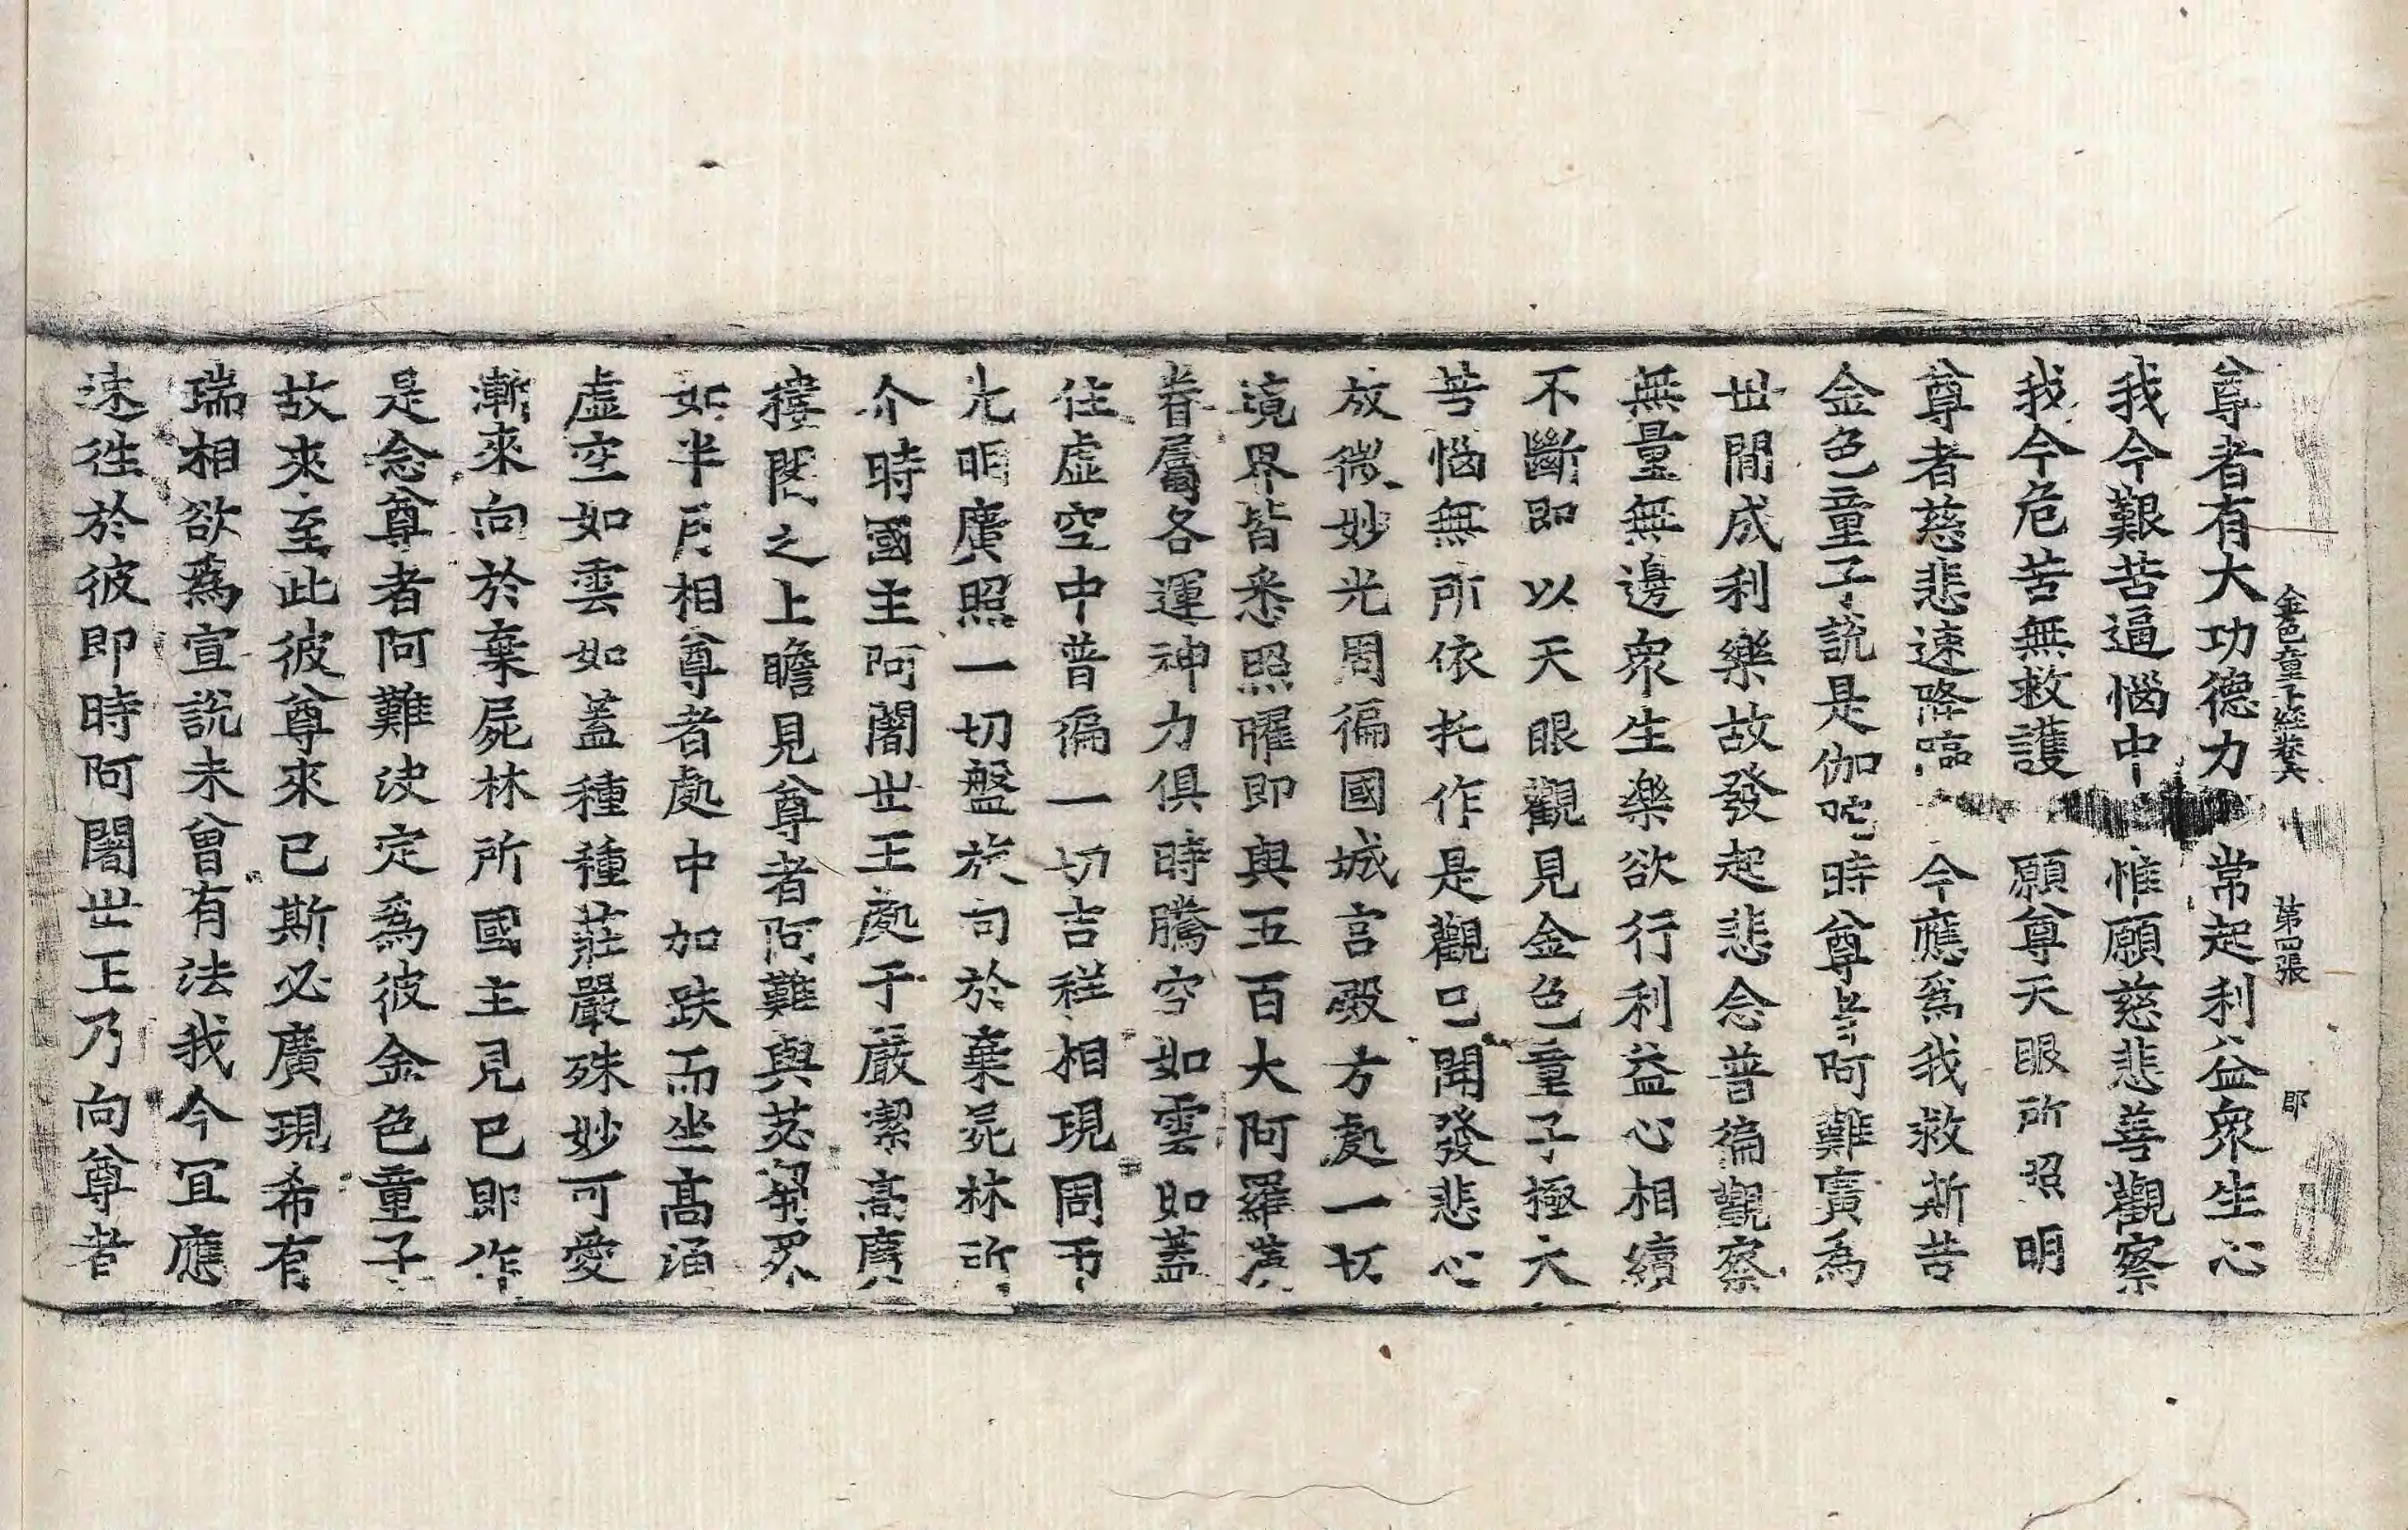 金色童子經卷六　第四張　郡
尊者有大功德力　常起利益衆生心
我今艱苦逼惱中　惟願慈悲善觀察
我今危苦無救護　願尊天眼所照明
尊者慈悲速降臨　今應爲我救斯苦
金色童子說是伽陀時尊者阿難廣為
世間成利樂故發起悲念普徧觀察
無量無邊衆生樂欲行利益心相續
不斷即以天眼觀見金色童子極大
苦惱無所依托作是觀已聞發悲心
放微妙光周徧國城宮殿方處一切
境界皆悉照曜即與五百大阿羅漢
眷屬各運神力俱時騰空如雲如蓋
住虛空中普徧一切吉祥相現周帀
光明廣照一切盤旋旬於棄屍林所
尒時國主阿闍世王處于嚴潔高廣
樓閣之上瞻見尊者阿難與苾芻衆
如半月相尊者處中加趺而坐高涌
虛空如雲如蓋種種莊嚴殊妙可愛
漸來向於棄屍林所國主見已即作
是念尊者阿難決定為彼金色童子
故來至此彼尊來已斯必廣現希有
瑞相欲爲宣說未曾有法我今宜應
速往於彼即時阿闍世王乃向尊者